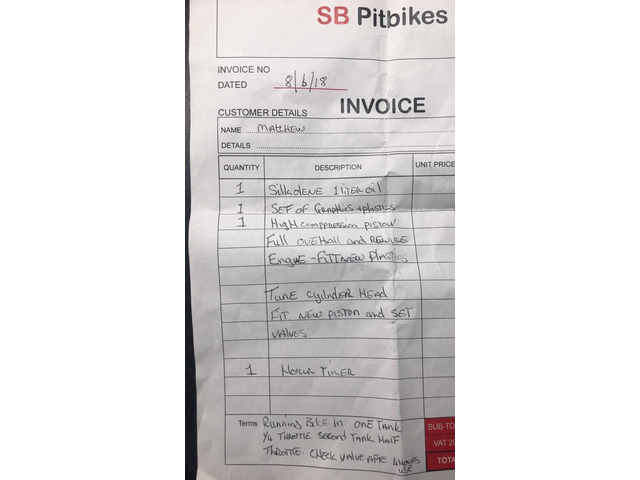 SB Pitbikes
INVOICE NO
DATED 8/6/18
CUSTOMER DETAILS INVOICE
NAME MATTHEW
DETAILS
QUANTITY DESCRIPTION UNIT PRICE
1 Silkolene 1 liter oil
1 SET OF Graphics + plastics
1 High comppression piston
Full overhall and Rewire
Engue - Fit new plastics
Tune cylinder head
Fit new piston and set
values
1 Hour Timer
Terms Running Bike in one Tank
1/4 Throttle second Tank half
Throttle. check value afte 4 hours
use
SUB-TO
VAT 20
TOTA